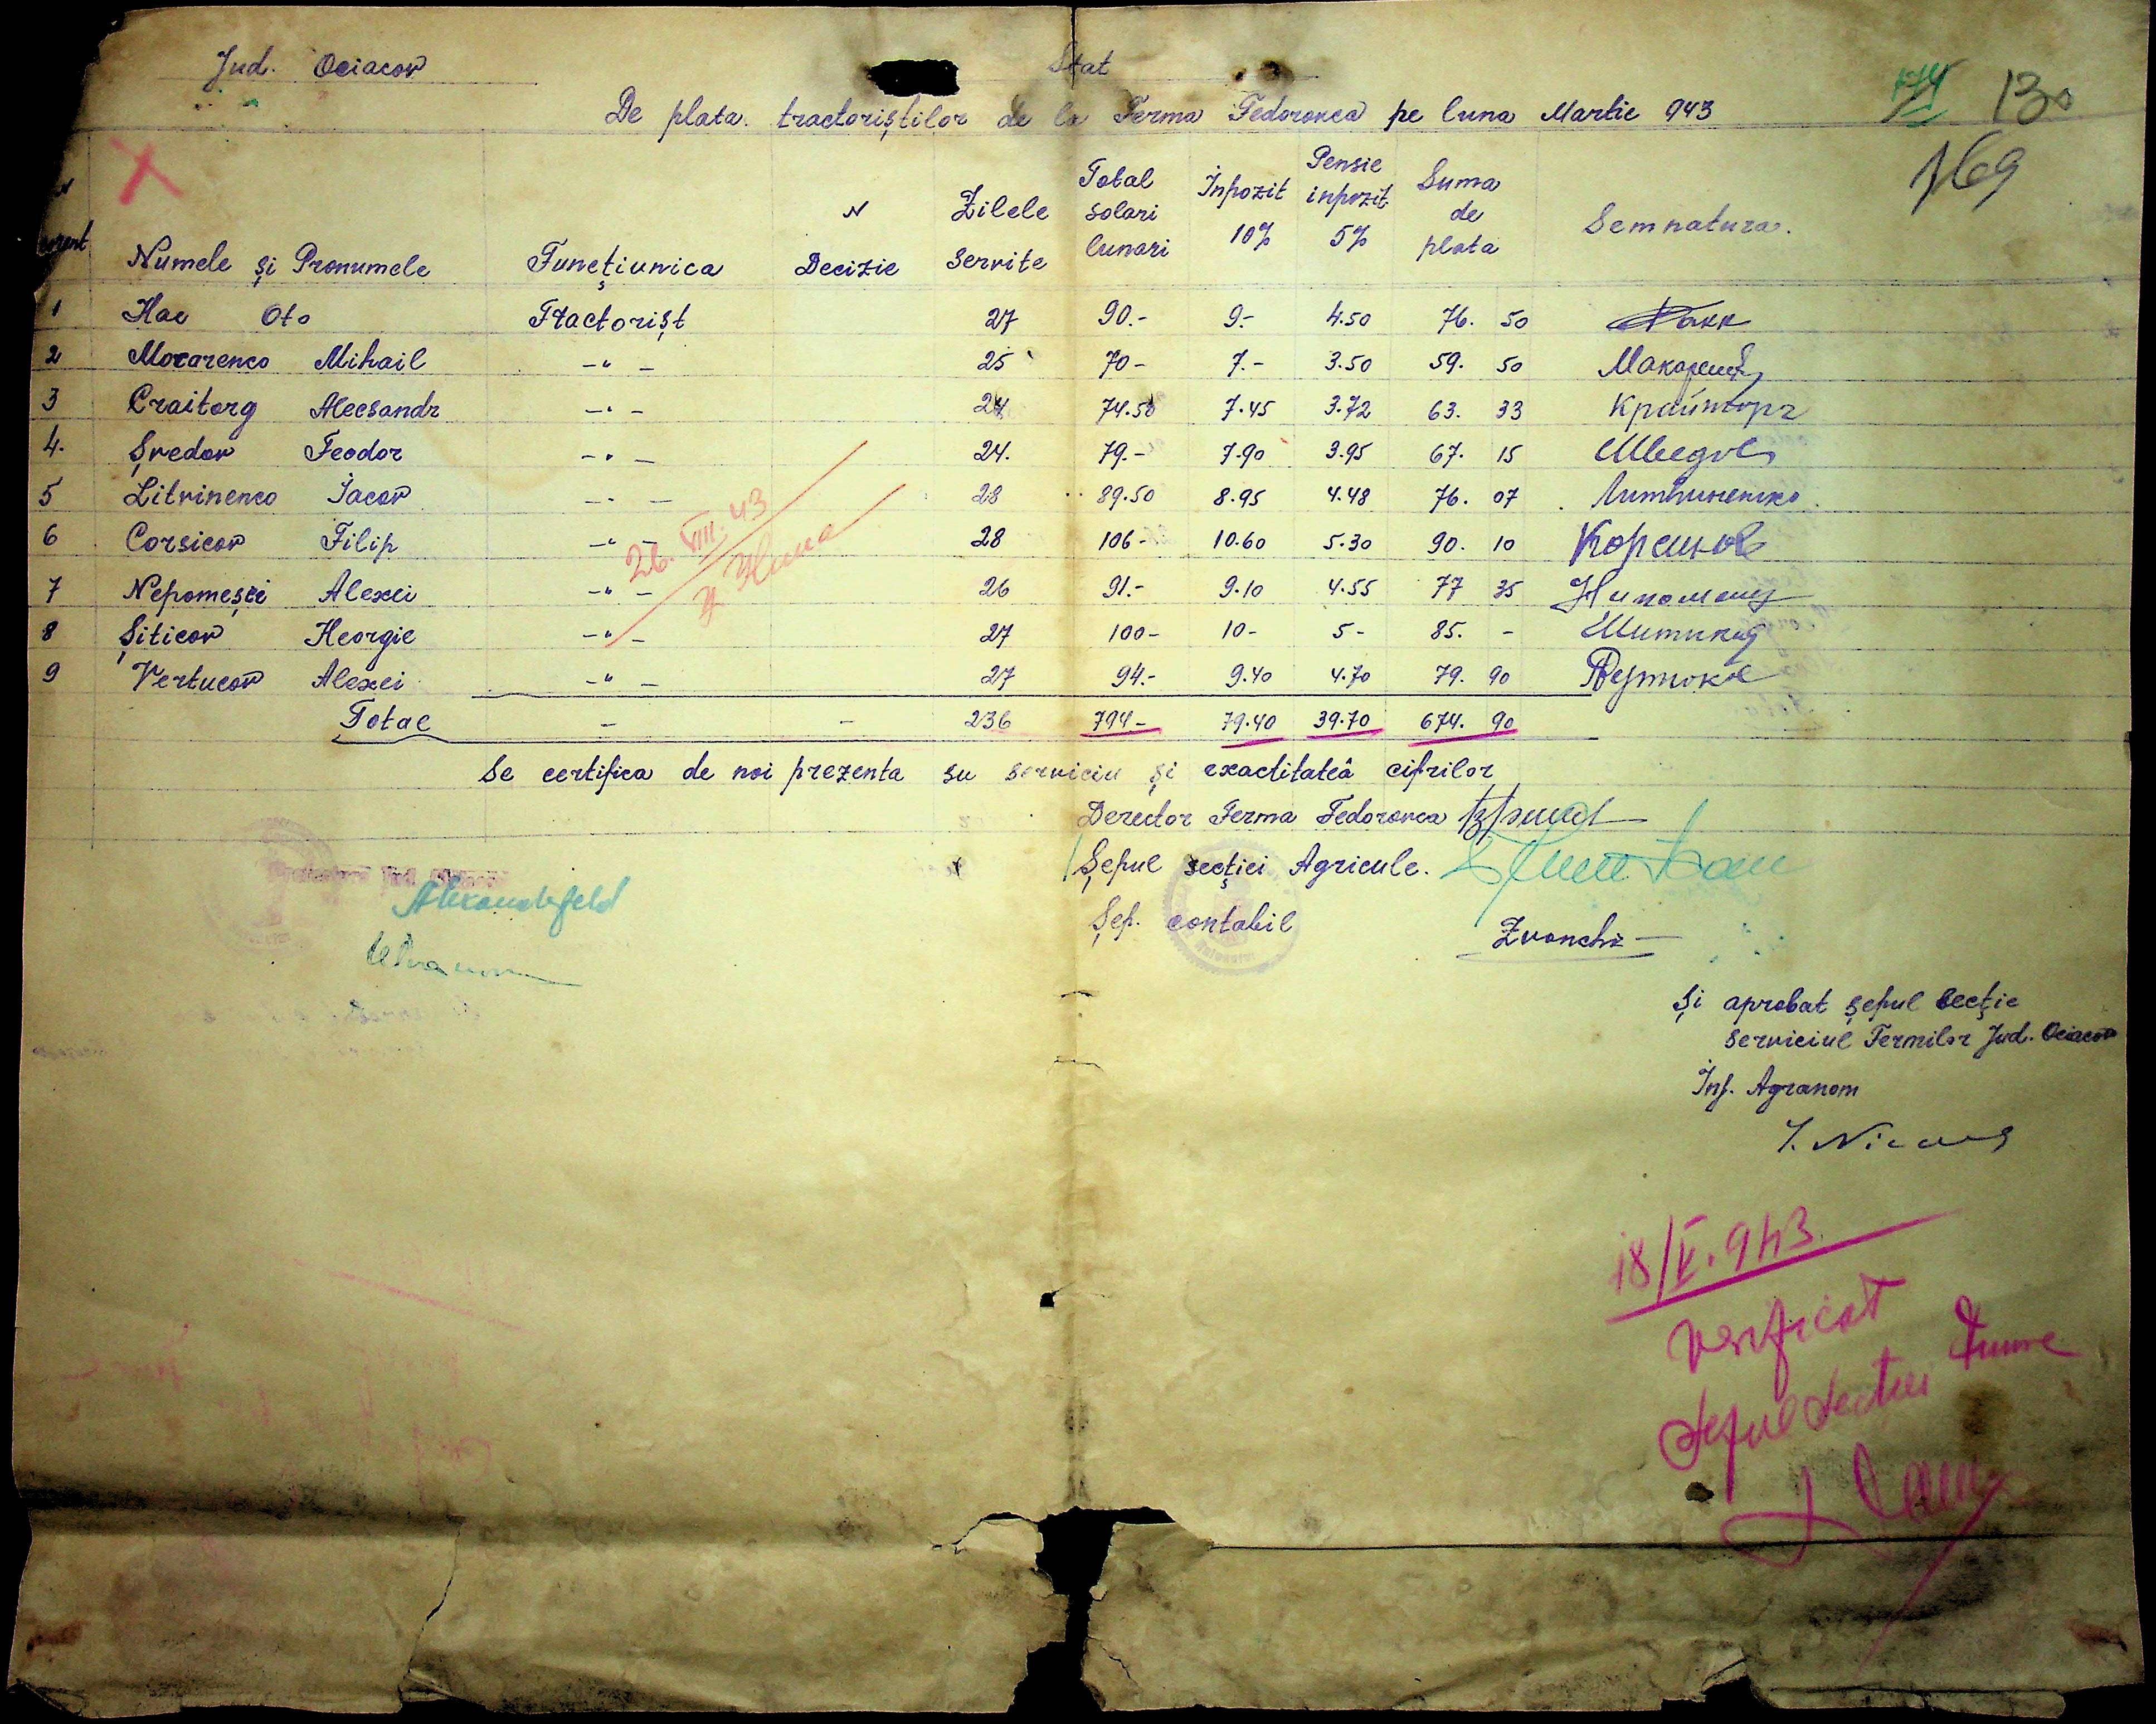 Jud. Ociacov
Stat
174 130
De plata tractoriștilor de la Ferma Fedorovca pe luna Martie 943
169
N Numele și Pronumele Funcțiunica N Decizie Zilele Servite Total solari lunari Inpozit 10% Pensie inpozit 5% Suma de plata Semnatura.
1 Hac Oto Tractorișt 27 90.- 9.- 4.50 76. 50 Факк
2 Mocarenco Mihail -"- 25 70- 7.- 3.50 59. 50
3 Craitorg Alecsandr -"- 24 74.50 7.45 3.72 63. 33 Крайторг
4. Șvedov Feodor -"- 24. 79.- 7.90 3.95 67. 15 Шведов
5 Litvinenco Iacov -"- 28 89.50 8.95 4.48 76. 07 Литвиненко
6 Corsicov Filip -"- 28 106- 10.60 5.30 90. 10 Корсиков
7 Nepomeșci Alexei -"- 26 91.- 9.10 4.55 77 35
8 Șiticov Heorgie -"- 27 100- 10- 5- 85. -
9 Vertucov Alexei -"- 27 94.- 9.40 4.70 79. 90
26.VIII.43
Total - - 236 794- 79.40 39.70 674. 90
Se certifica de noi prezenta su serviciu și exactitateâ cifrilor
Derector Ferma Fedorovca
Șeful secției Agricule.
Alexandrfeld
Șef. contabil
Zvonchi
Și aprobat șeful Secție
Serviciul Fermilor Jud. Ociacov
Inf. Agranom
18/V.943.
Verificat
Seful Sectiei